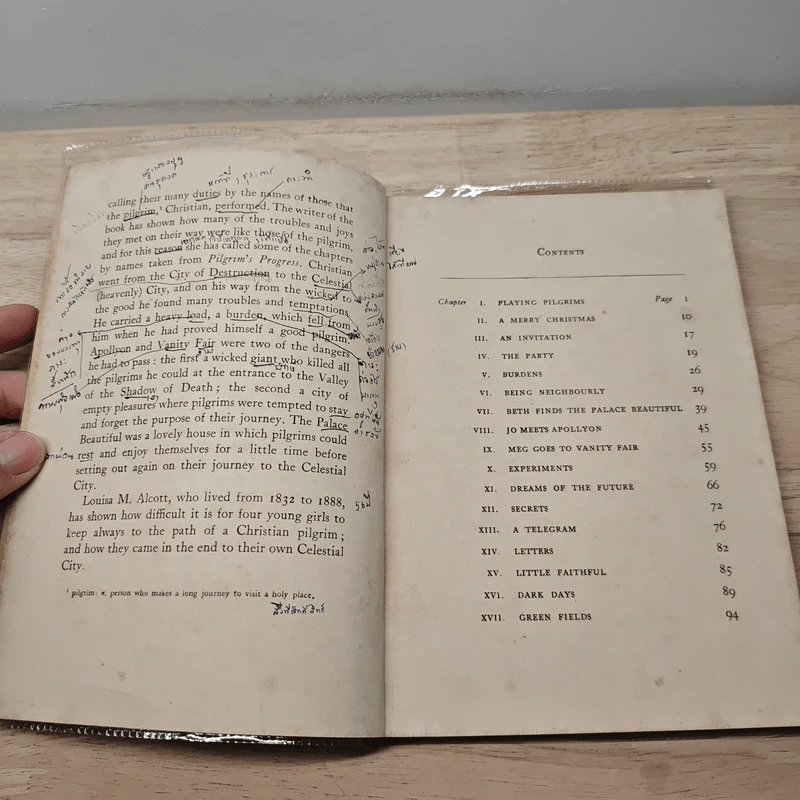 calling their many duties by the names of those that
the pilgrim,¹ Christian, performed. The writer of the
book has shown how many of the troubles and joys
they met on their way were like those of the pilgrim,
and for this reason she has called some of the chapters
by names taken from Pilgrim's Progress. Christian
went from the City of Destruction to the Celestial
(heavenly) City, and on his way from the wicked to
the good he found many troubles and temptations.
He carried a heavy load, a burden, which fell from
him when he had proved himself a good pilgrim.
Apollyon and Vanity Fair were two of the dangers
he had to pass: the first a wicked giant who killed all
the pilgrims he could at the entrance to the Valley
of the Shadow of Death; the second a city of
empty pleasures where pilgrims were tempted to stay
and forget the purpose of their journey. The Palace
Beautiful was a lovely house in which pilgrims could
rest and enjoy themselves for a little time before
setting out again on their journey to the Celestial
City.
Louisa M. Alcott, who lived from 1832 to 1888,
has shown how difficult it is for four young girls to
keep always to the path of a Christian pilgrim;
and how they came in the end to their own Celestial
City.
¹ pilgrim: n. person who makes a long journey to visit a holy place.
สิ่งศักดิ์สิทธิ์
CONTENTS
Chapter I. PLAYING PILGRIMS Page 1
II. A MERRY CHRISTMAS 10
III. AN INVITATION 17
IV. THE PARTY 19
V. BURDENS 26
VI. BEING NEIGHBOURLY 29
VII. BETH FINDS THE PALACE BEAUTIFUL 39
VIII. JO MEETS APOLLYON 45
IX. MEG GOES TO VANITY FAIR 55
X. EXPERIMENTS 59
XI. DREAMS OF THE FUTURE 66
XII. SECRETS 72
XIII. A TELEGRAM 76
XIV. LETTERS 82
XV. LITTLE FAITHFUL 85
XVI. DARK DAYS 89
XVII. GREEN FIELDS 94